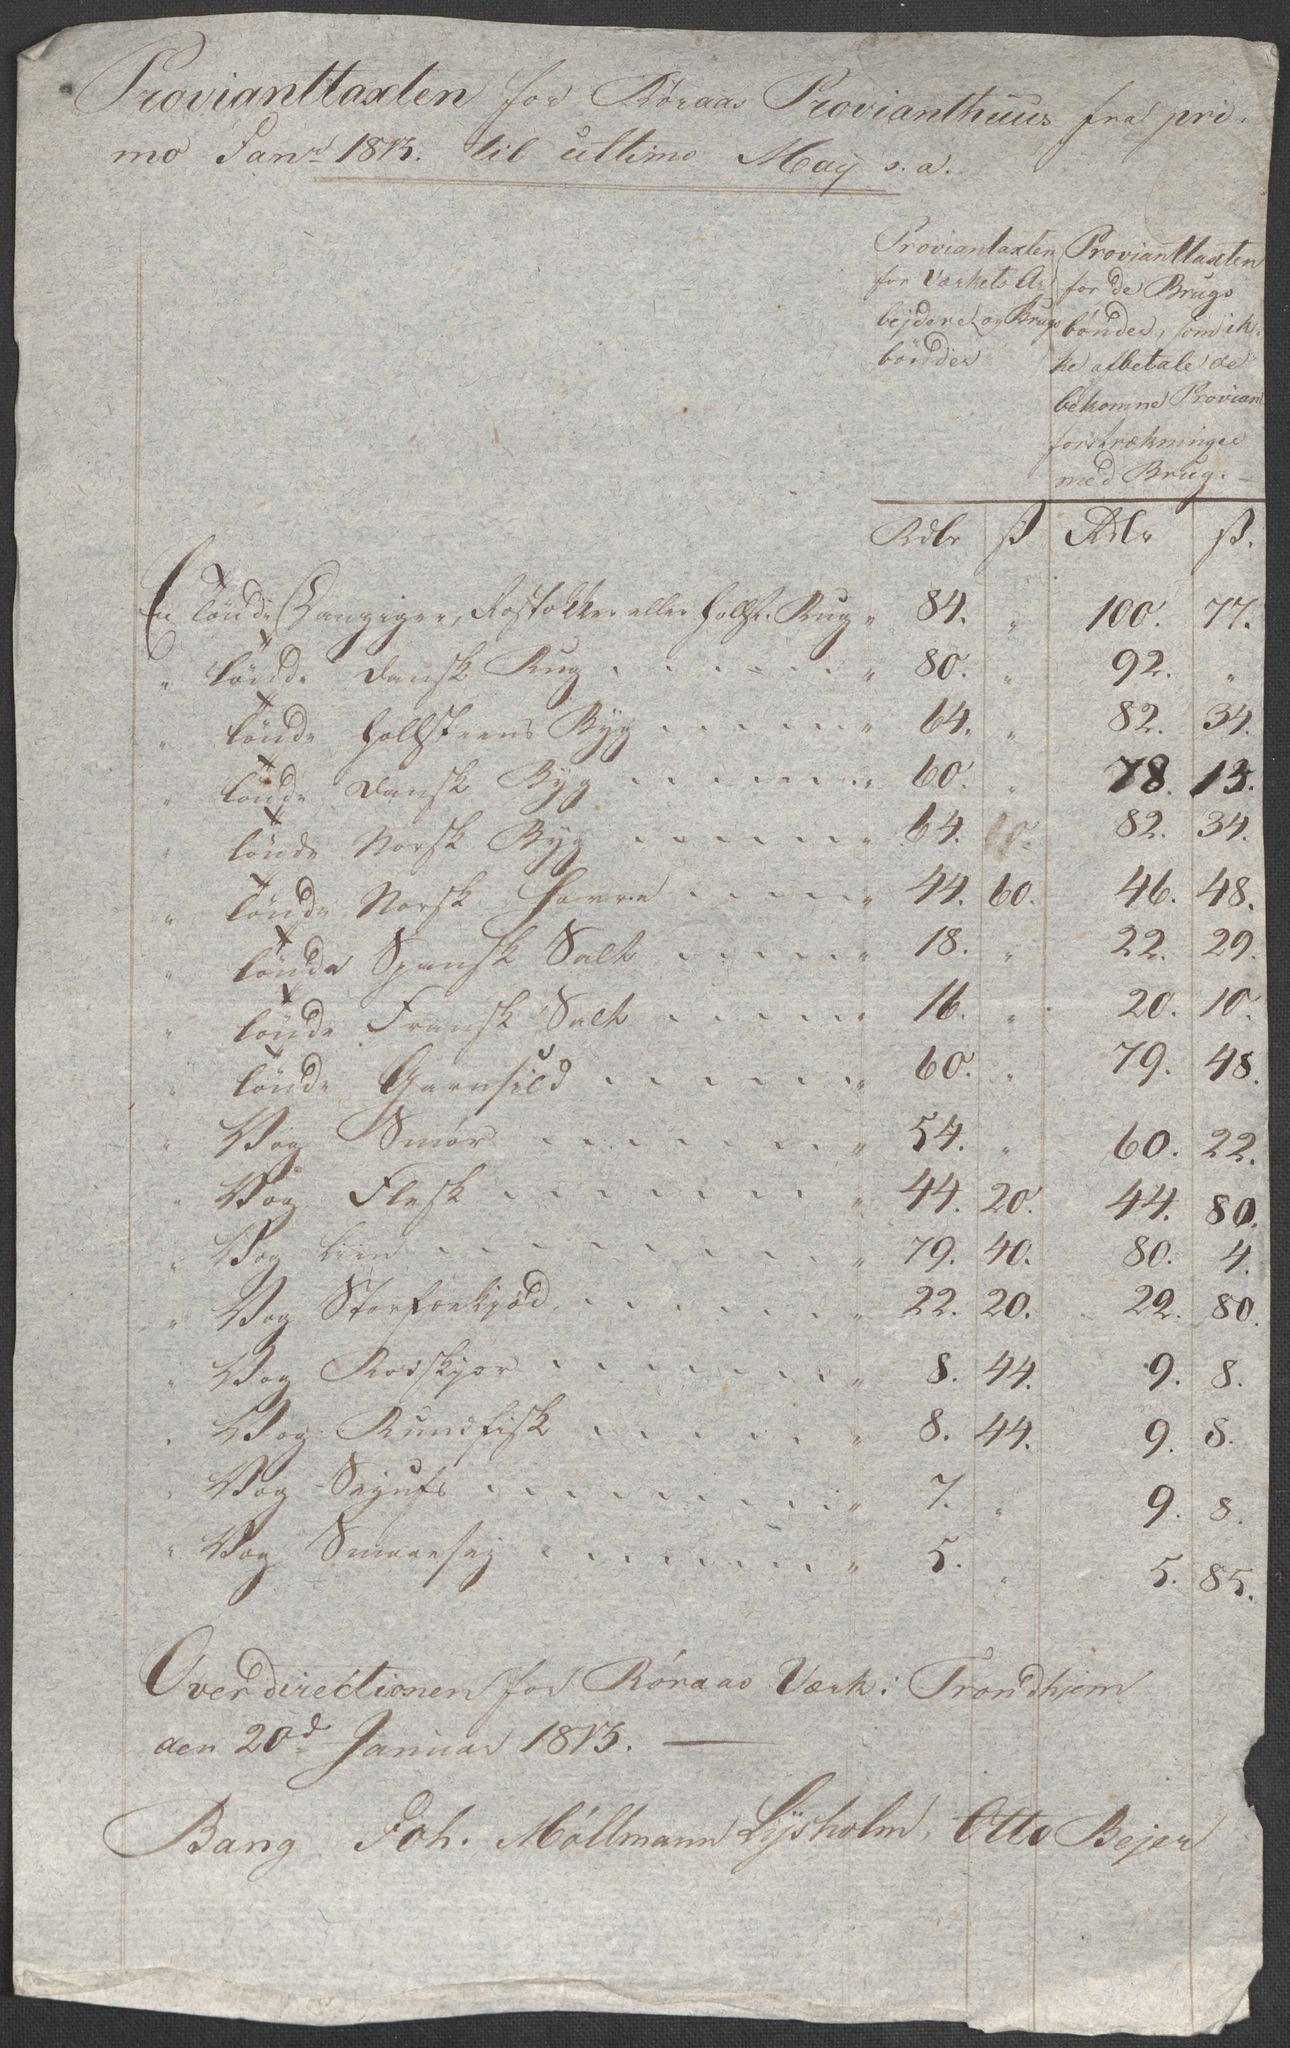 Provianttaxten for Røraas Provianthuus fra pri-
mo Janr 1813. til ultimo Maÿ s. a.
Proviantaxten
for Værkets Ar
bejdere og Brugs
bønder
Provianttaxten
for de Brugs
bønder, som ik-
ke afbetale de
bekomne Proviant
forstrækninger
med Brug. -
Rdlr ß Rdlr ß.
En Tönde Danziger, Rostokker eller Hollst. Rug " 84. " 100. 77.
" Tönde Dansk Rug " 80. " 92. "
" Tönde Hollsteens Byg " 64. " 82. 34.
" Tönde Dansk Byg " 60. " 78. 13.
" Tönde Norsk Byg " 64. 82. 34.
" Tönde Norsk Havre " 44. 60. 46. 48.
" Tönde Spansk Salt " 18. " 22. 29.
" Tönde Fransk Salt " 16. " 20. 10.
" Tönde Gaarnsild " 60. " 79. 48.
" Vog Smør " 54. " 60. 22.
" Vog Flesk " 44. 20. 44. 80.
" Vog Liin " 79. 40. 80. 4.
" Vog Storfoekjød " 22. 20. 22. 80.
" Vog Rodskjær " 8. 44. 9. 8.
" Vog Rundfisk " 8. 44. 9. 8.
" Vog Sejufs " 7. " 9. 8.
" Vog Smaaesej " 5. " 5. 85.
Overdirectionen for Røraas Værk i Trondhjem
den 20d Januar 1813. —
Bang Joh. Møllmann Lÿsholm, Otto Bejer